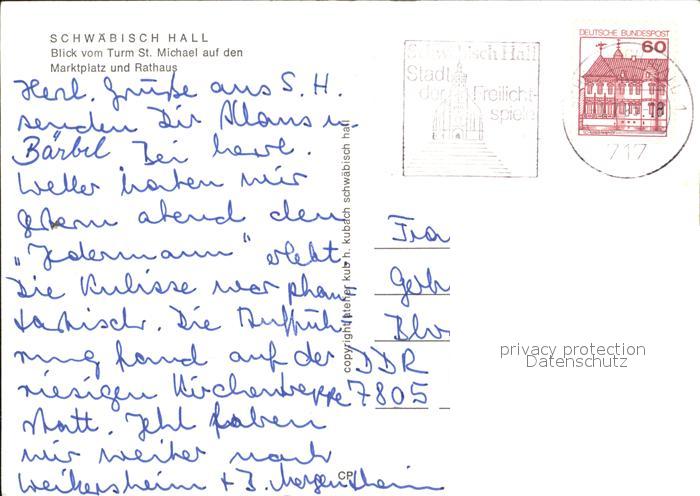 SCHWÄBISCH HALL
Blick vom Turm St. Michael auf den
Marktplatz und Rathaus
Herl. Grüße aus S. H.
senden Dir Klaus u.
Bärbel. Bei herrl.
Wetter haben wir
gestern abend den
„Jedermann" erlebt.
Die Kulisse war phan-
tastisch. Die Auffüh-
rung fand auf der
riesigen Kirchentreppe
statt. Jetzt fahren
wir weiter nach
Weikersheim + B. Mergentheim
copyright h. kubach schwäbisch hall
CP
Schwäbisch Hall
Stadt
der Freilicht-
spiele
DEUTSCHE BUNDESPOST
60
717
Frau
DDR
7805
privacy protection
Datenschutz